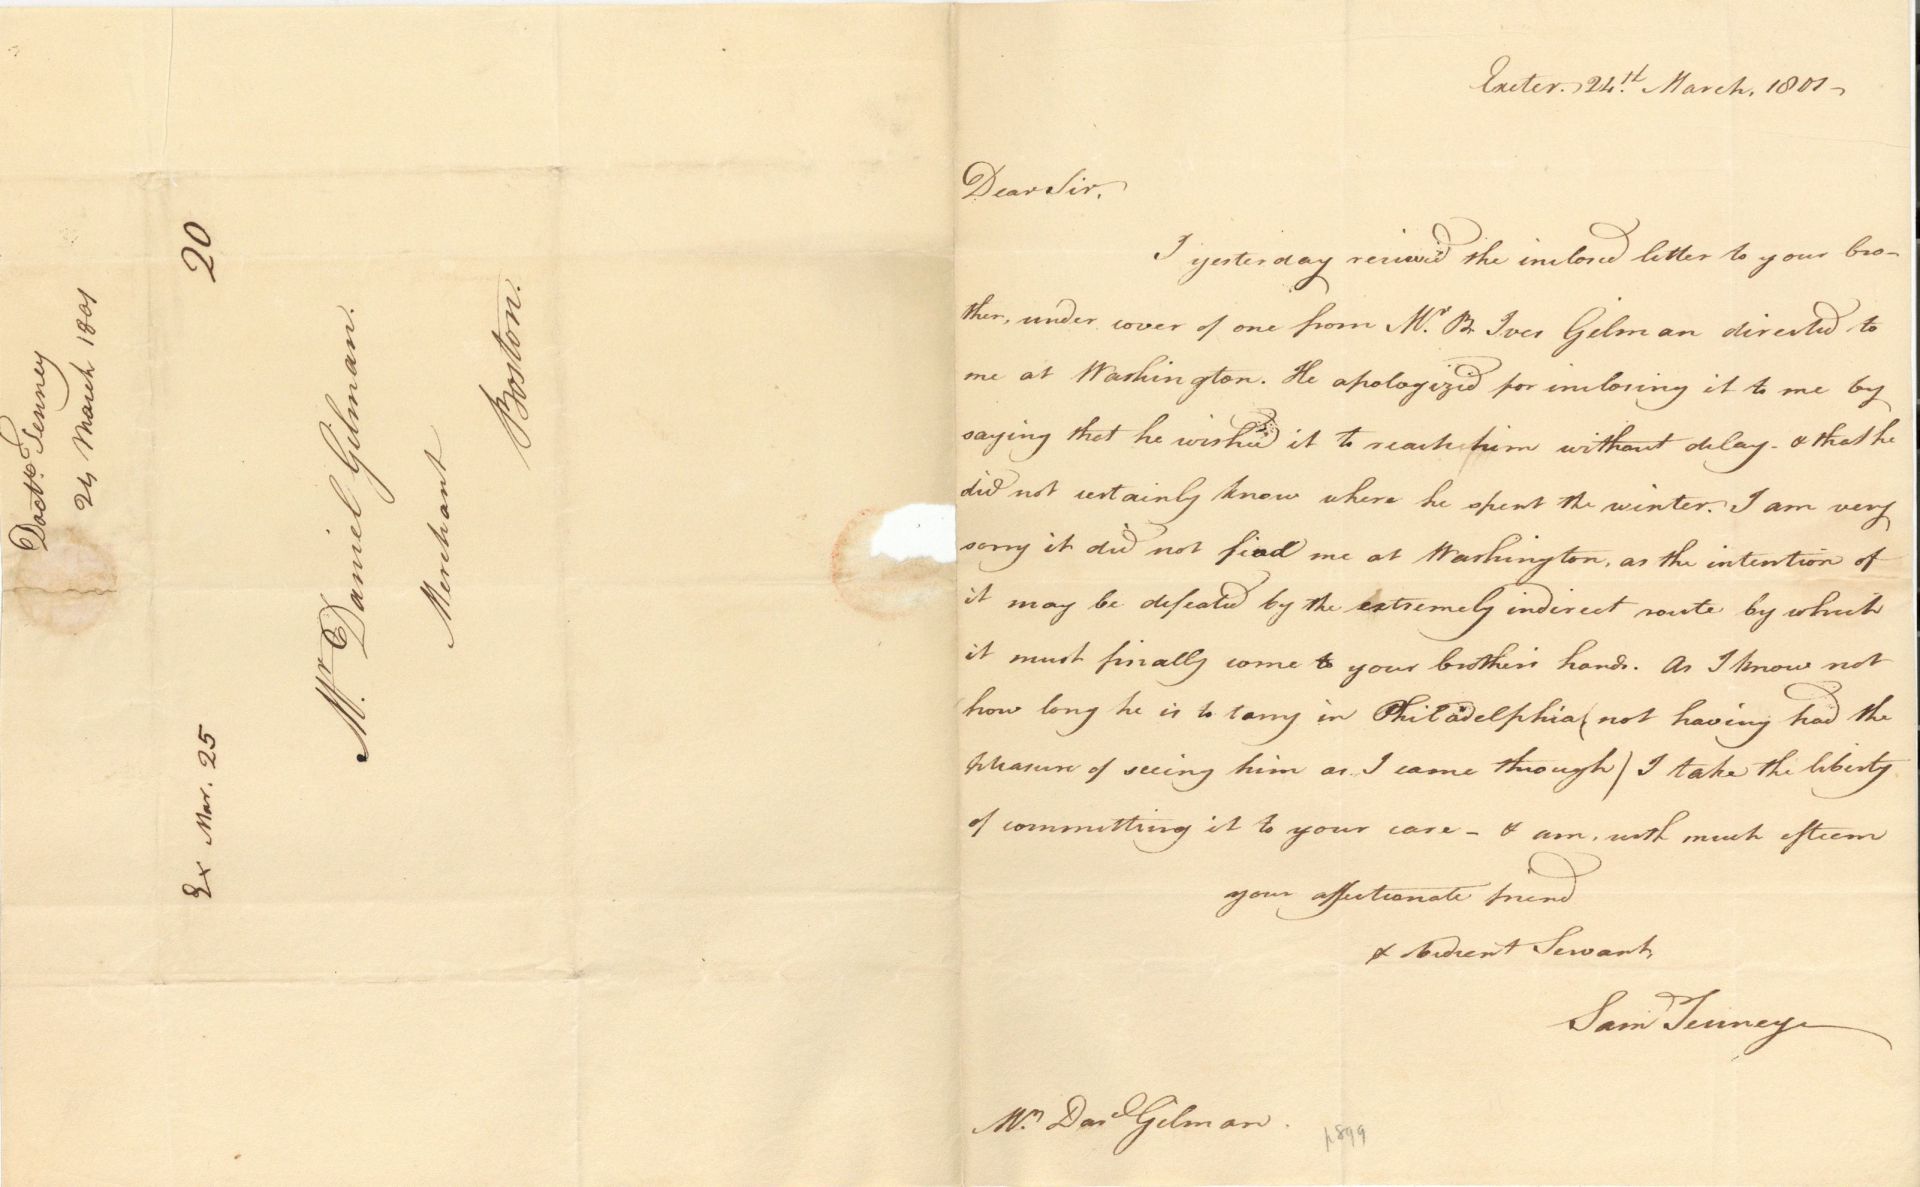 Doctr. Tenney
24 March 1801
Ex Mar. 25
20
Mr. Daniel Gilman.
Merchant
Boston.
Exeter. 24th. March. 1801-
Dear Sir,
I yesterday received the inclosed letter to your bro-
ther, under cover of one from Mr. B Ives Gilman directed to
me at Washington. He apologized for inclosing it to me by
saying that he wished it to reach him without delay - & that he
did not certainly know where he spent the winter. I am very
sorry it did not find me at Washington, as the intention of
it may be defeated by the extremely indirect route by which
it must finally come to your brother's hands. As I know not
how long he is to tarry in Philadelphia (not having had the
pleasure of seeing him as I came through) I take the liberty
of committing it to your care - & am, with much esteem
your affectionate friend
& obedient Servant,
Sam Tenney
Mr. Danl Gilman.
1899